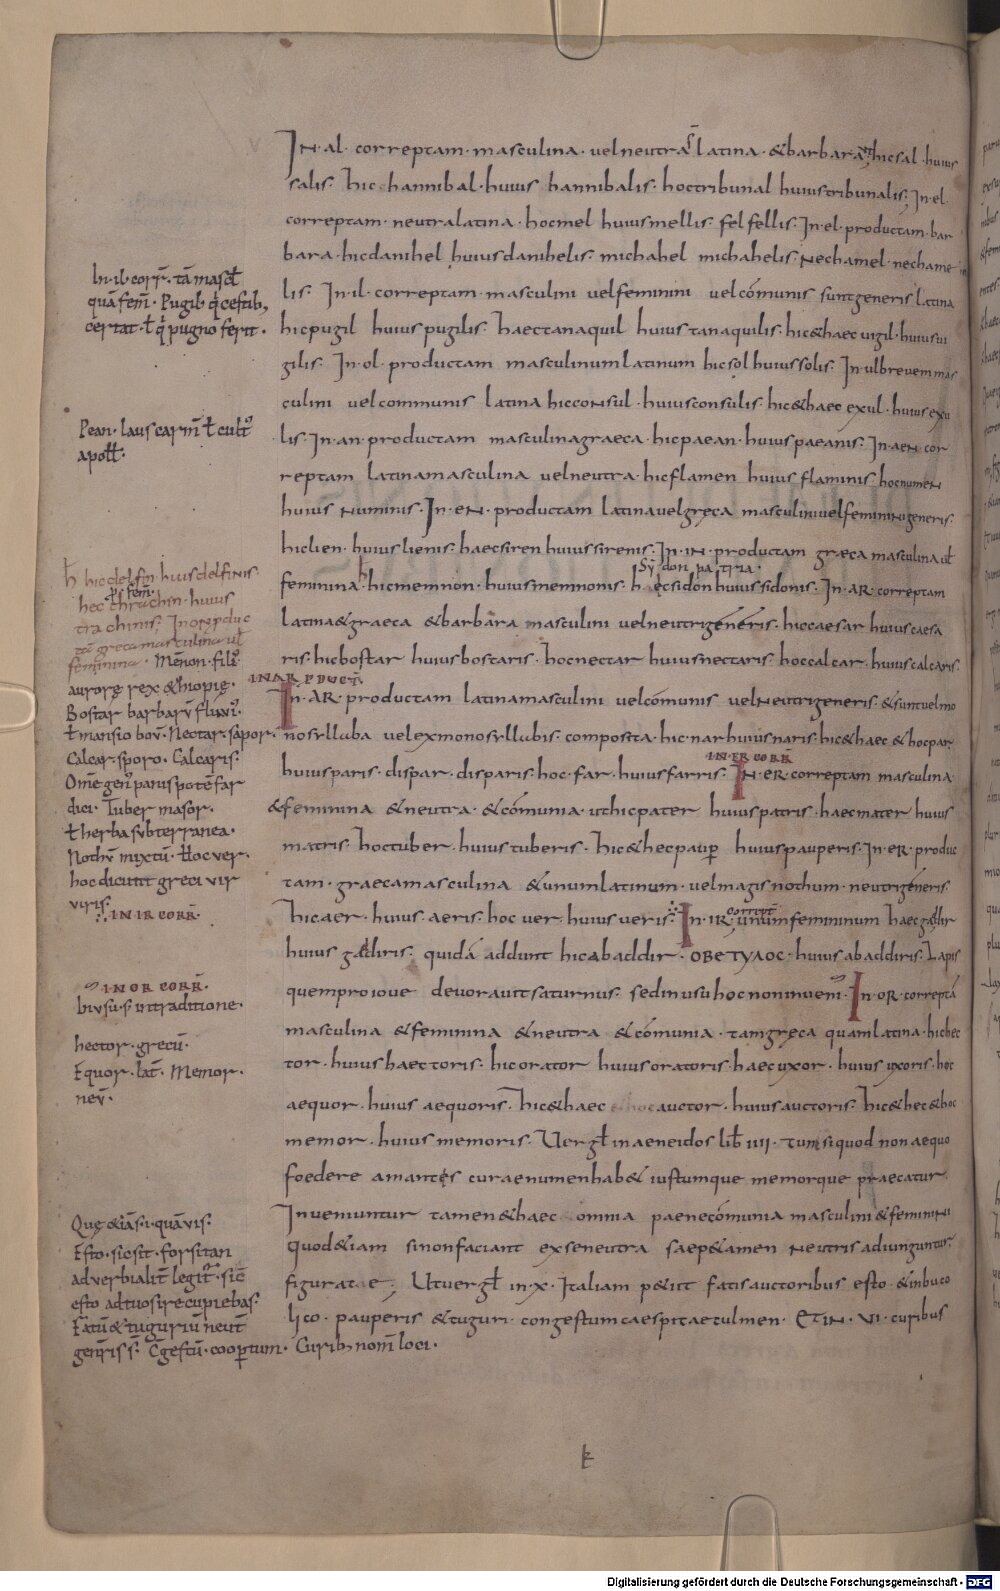 IN·al· correptam· masculina· vel neutra s̄ latina· &barbara· ut hic sal· huius
salis· hic hannibal· huius hannibalis· hoc tribunal huius tribunalis; In·el·
correptam· neutra latina· hoc mel huius mellis· fel fellis· In·el·productam·bar
bara· hic danihel huius danihelis· michahel michahelis· Nechamel· nechame
lis· In·il· correptam· masculini vel feminini vel cōmunis sunt generis latina
hic pugil huius pugilis· haec tanaquil huius tanaquilis· hic&haec vigil· huius vi
gilis· In·ol· productam masculinum latinum hic sol huius solis· In ul brevem mas
culini vel communis latina hic consul· huius consulis· hic&haec exul· huius exu
lis· In·an· productam masculina graeca· hic paean· huius paeanis· In·aen· cor
reptam latina masculina vel neutra· hic flamen huius flaminis· hoc numen
huius numinis· In·en· productam latina vel gręca masculini vel feminini generis·
hic lien· huius lienis· haec siren huius sirenis· In·in· productam gręca masculina ul̄
Sȳdon patria·
feminina· hic memnon· huius memnonis· h ęc sidon huius sidonis· In·ar· correptam
latina&graeca &barbara masculini vel neutri géneris· hic caesar huius caesa
ris· hic bostar huius bostaris· hoc nectar huius nectaris· hoc calcar· huius calcaris·
IN AR PDUCT̄·
In·AR· productam latina masculini vel cōmunis vel neutri generis· &sunt vel mo
nosyllaba vel ex monosyllabis· composita· hic·nar huius naris· hic&haec &hoc par
IN ER CORR̄
huius paris· dispar· disparis· hoc·far· huius farris· IN·ER· correptam masculina
&feminina &neutra· &cōmunia· ut hic pater huius patris· haec mater huius
matris· hoc tuber· huius tuberis· hic&hec paup̄ huius pauperis· In·er· produc
tam· graeca masculina &unum latinum· vel magis nothum· neutri géneris·
corrept̄
hic aer· huius· aeris· hoc uer· huius veris· In·ir· unum femininum haec gaddir
huius gaddiris· quidā addunt hic abaddir· ΟΒΕΤΥΛΟC· huius abaddiris· Lapis
quem pro iove devoravit saturnus· sed in usu hoc non inveni· In·or· correptā
masculina &feminina &neutra &cōmunia· tam gręca quam latina· hic hec
tor· huius haectoris· hic orator huius oratoris· haec uxor· huius uxoris· hoc
aequor· huius aequoris· hic&haec auctor· huius auctoris· hic&hec&hoc
memor· huius memoris· Vergl̄ in aeneidos lib̄ iiii· tum si quod non aequo
foedere amantes curae numen hab& iustumque memorque praecatur·
Inveniuntur tamen &haec omnia paene cōmunia masculini&feminini
quod&iam si non faciant ex se neutra saep&amen neutris adiunguntur
figuratae; Ut uergl̄ in·x· Italiam p&iit fatis auctoribus esto· &in buco
lico· pauperis &tuguri· congestum caespitae culmen· Et in·vi·curibus
In·il·corr̄· tā mascl̄
quā fem̄· Pugil· q̇ cestib;
certat· ł q̇ pugno ferit·
Pean· laus carm̄ ł cult'
apoll̄·
h̄ hic delfin huius delfinis·
p̄ fem̄·
hec thrachin· huius
trachinis· In on pduc
tā greca masculina ul̄
feminina· Mēnon· fili'
aurorę rex &hiopię·
Bostar barbarū fluvi'·
ł mansio boū· Nectar· sapor·
Calcar· sporo· Calcaris·
Omē gen' panis potē far
dici· Tuber masor·
ł herba subterranea·
Nothū mixtū· ł hoc ver·
hoc dicunt greci vir
viris·
∴ IN IR CORR̄·
IN OR CORR̄·
bivsu·s·in traditione·
hector· grecū·
Equor· lat̄· Memor·
neū·
Quę &iā·s·i·quāvis·
Esto· sic sit· forsitan
adverbialit̄ legit̄· sic
esto adtuosire cupiebas·
Fatū&tuguriū neut̄
gen̄ris s̄· Cḡestū· coopertum· Curib; nom̄ loci·
k
Digitalisierung gefördert durch die Deutsche Forschungsgemeinschaft · DFG